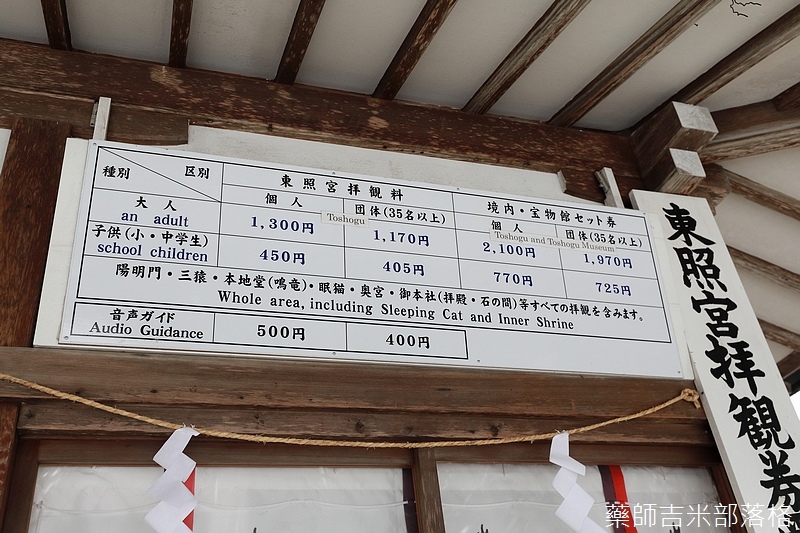 種別 区別
東照宮拝観料
境内・宝物館セット券
個人
団体(35名以上)
個人
団体(35名以上)
Toshogu
Toshogu and Toshogu Museum
大人
an adult
1,300円
1,170円
2,100円
1,970円
子供(小・中学生)
school children
450円
405円
770円
725円
陽明門・三猿・本地堂(鳴竜)・眠猫・奥宮・御本社(拝殿・石の間)等すべての拝観を含みます。
Whole area, including Sleeping Cat and Inner Shrine
音声ガイド
Audio Guidance
500円
400円
東照宮拝観券
藥師吉米部落格